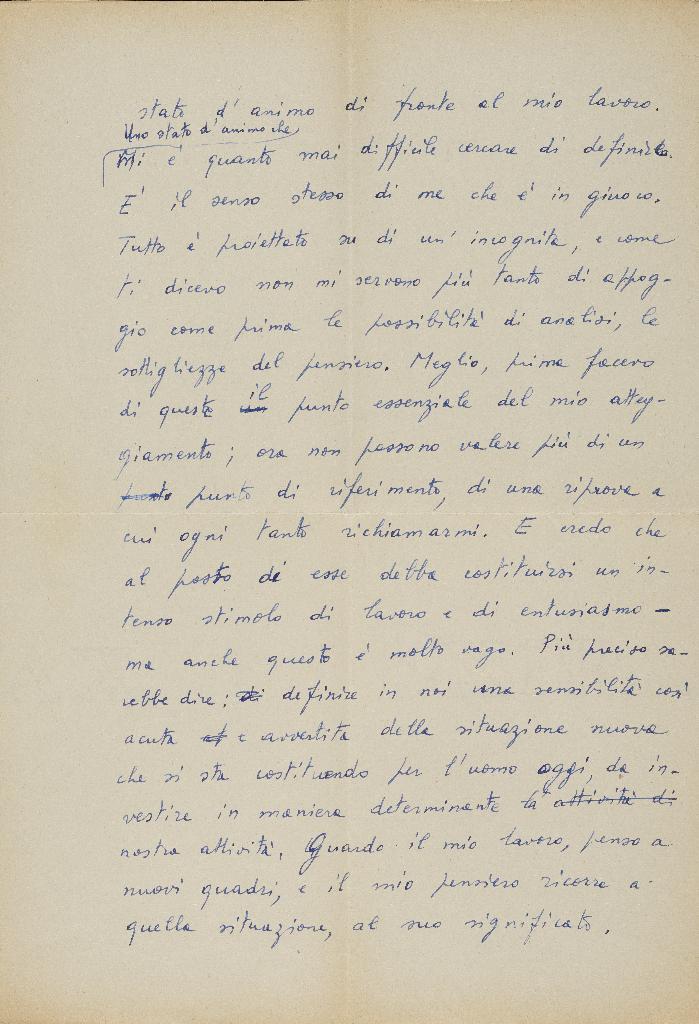 stato d'animo di fronte al mio lavoro.
Uno stato d'animo che
Mi è quanto mai difficile cercare di definire.
E' il senso stesso di me che è in giuoco.
Tutto è proiettato su di un' incognita, e come
ti dicevo non mi servono più tanto di appog-
gio come prima le possibilità di analisi, le
sottigliezze del pensiero. Meglio, prima facevo
di queste il punto essenziale del mio atteg-
giamento; ora non possono valere più di un
punto di riferimento, di una riprova a
cui ogni tanto richiamarmi. E credo che
al posto di esse debba costituirsi un in-
tenso stimolo di lavoro e di entusiasmo -
ma anche questo è molto vago. Più preciso sa-
rebbe dire: di definire in noi una sensibilità così
acuta e avvertita della situazione nuova
che si sta costituendo per l'uomo oggi, da in-
vestire in maniera determinante la attività di
nostra attività. Guardo il mio lavoro, penso a
nuovi quadri, e il mio pensiero ricorre a
quella situazione, al suo significato.